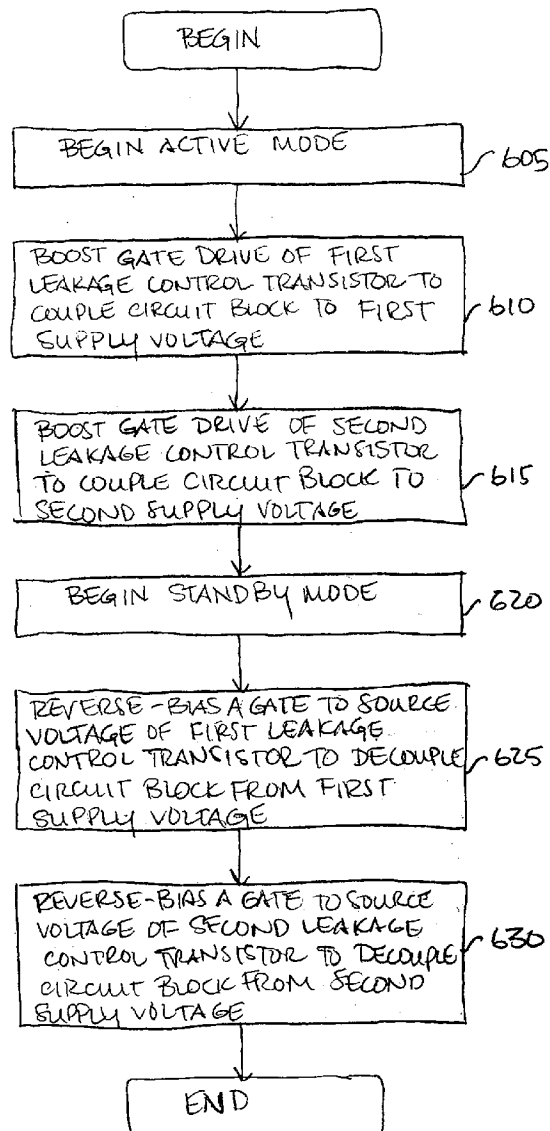 BEGIN
BEGIN ACTIVE MODE
605
BOOST GATE DRIVE OF FIRST
LEAKAGE CONTROL TRANSISTOR TO
COUPLE CIRCUIT BLOCK TO FIRST
SUPPLY VOLTAGE
610
BOOST GATE DRIVE OF SECOND
LEAKAGE CONTROL TRANSISTOR
TO COUPLE CIRCUIT BLOCK TO
SECOND SUPPLY VOLTAGE
615
BEGIN STANDBY MODE
620
REVERSE-BIAS A GATE TO SOURCE
VOLTAGE OF FIRST LEAKAGE
CONTROL TRANSISTOR TO DECOUPLE
CIRCUIT BLOCK FROM FIRST
SUPPLY VOLTAGE
625
REVERSE-BIAS A GATE TO SOURCE
VOLTAGE OF SECOND LEAKAGE
CONTROL TRANSISTOR TO DECOUPLE
CIRCUIT BLOCK FROM SECOND
SUPPLY VOLTAGE
630
END